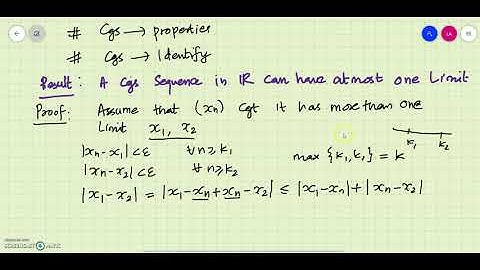 # Cgs → properties
# Cgs → Identify
Result: A Cgs Sequence in IR can have atmost one Limit
Proof: Assume that (xn) Cgt it has more than one
Limit x1, x2
|xn-x1|<ε ∀ n≥k1
|xn-x2|<ε ∀ n≥k2
max {k1,k1} = k
k1 k2
|x1-x2| = |x1-xn+xn-x2| ≤ |x1-xn|+|xn-x2|